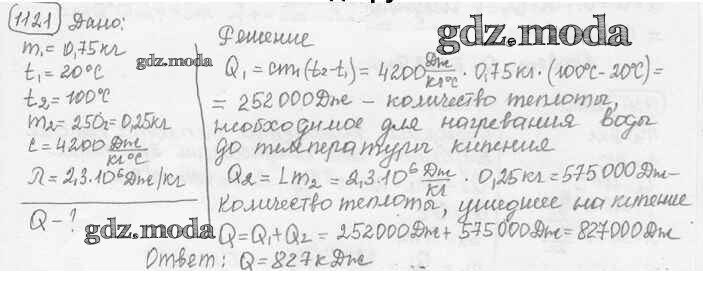 1121 Дано:
m₁= 0,75кг
t₁= 20°C
t₂= 100°C
m₂= 250г= 0,25кг
c = 4200 Дж/кг°C
Л = 2,3·10⁶Дж/кг
Q – ?
gdz.moda
gdz.moda
gdz.moda
Решение
Q₁ = cm₁(t₂-t₁) = 4200 Дж/кг°C · 0,75кг·(100°C-20°C) =
= 252000Дж – количество теплоты,
необходимое для нагревания воды
до температуры кипения
Q₂ = Lm₂ = 2,3·10⁶ Дж/кг · 0,25кг = 575000Дж-
количество теплоты, ушедшее на кипение
Q = Q₁+Q₂ = 252000Дж + 575000Дж = 827000Дж
Ответ: Q = 827кДж